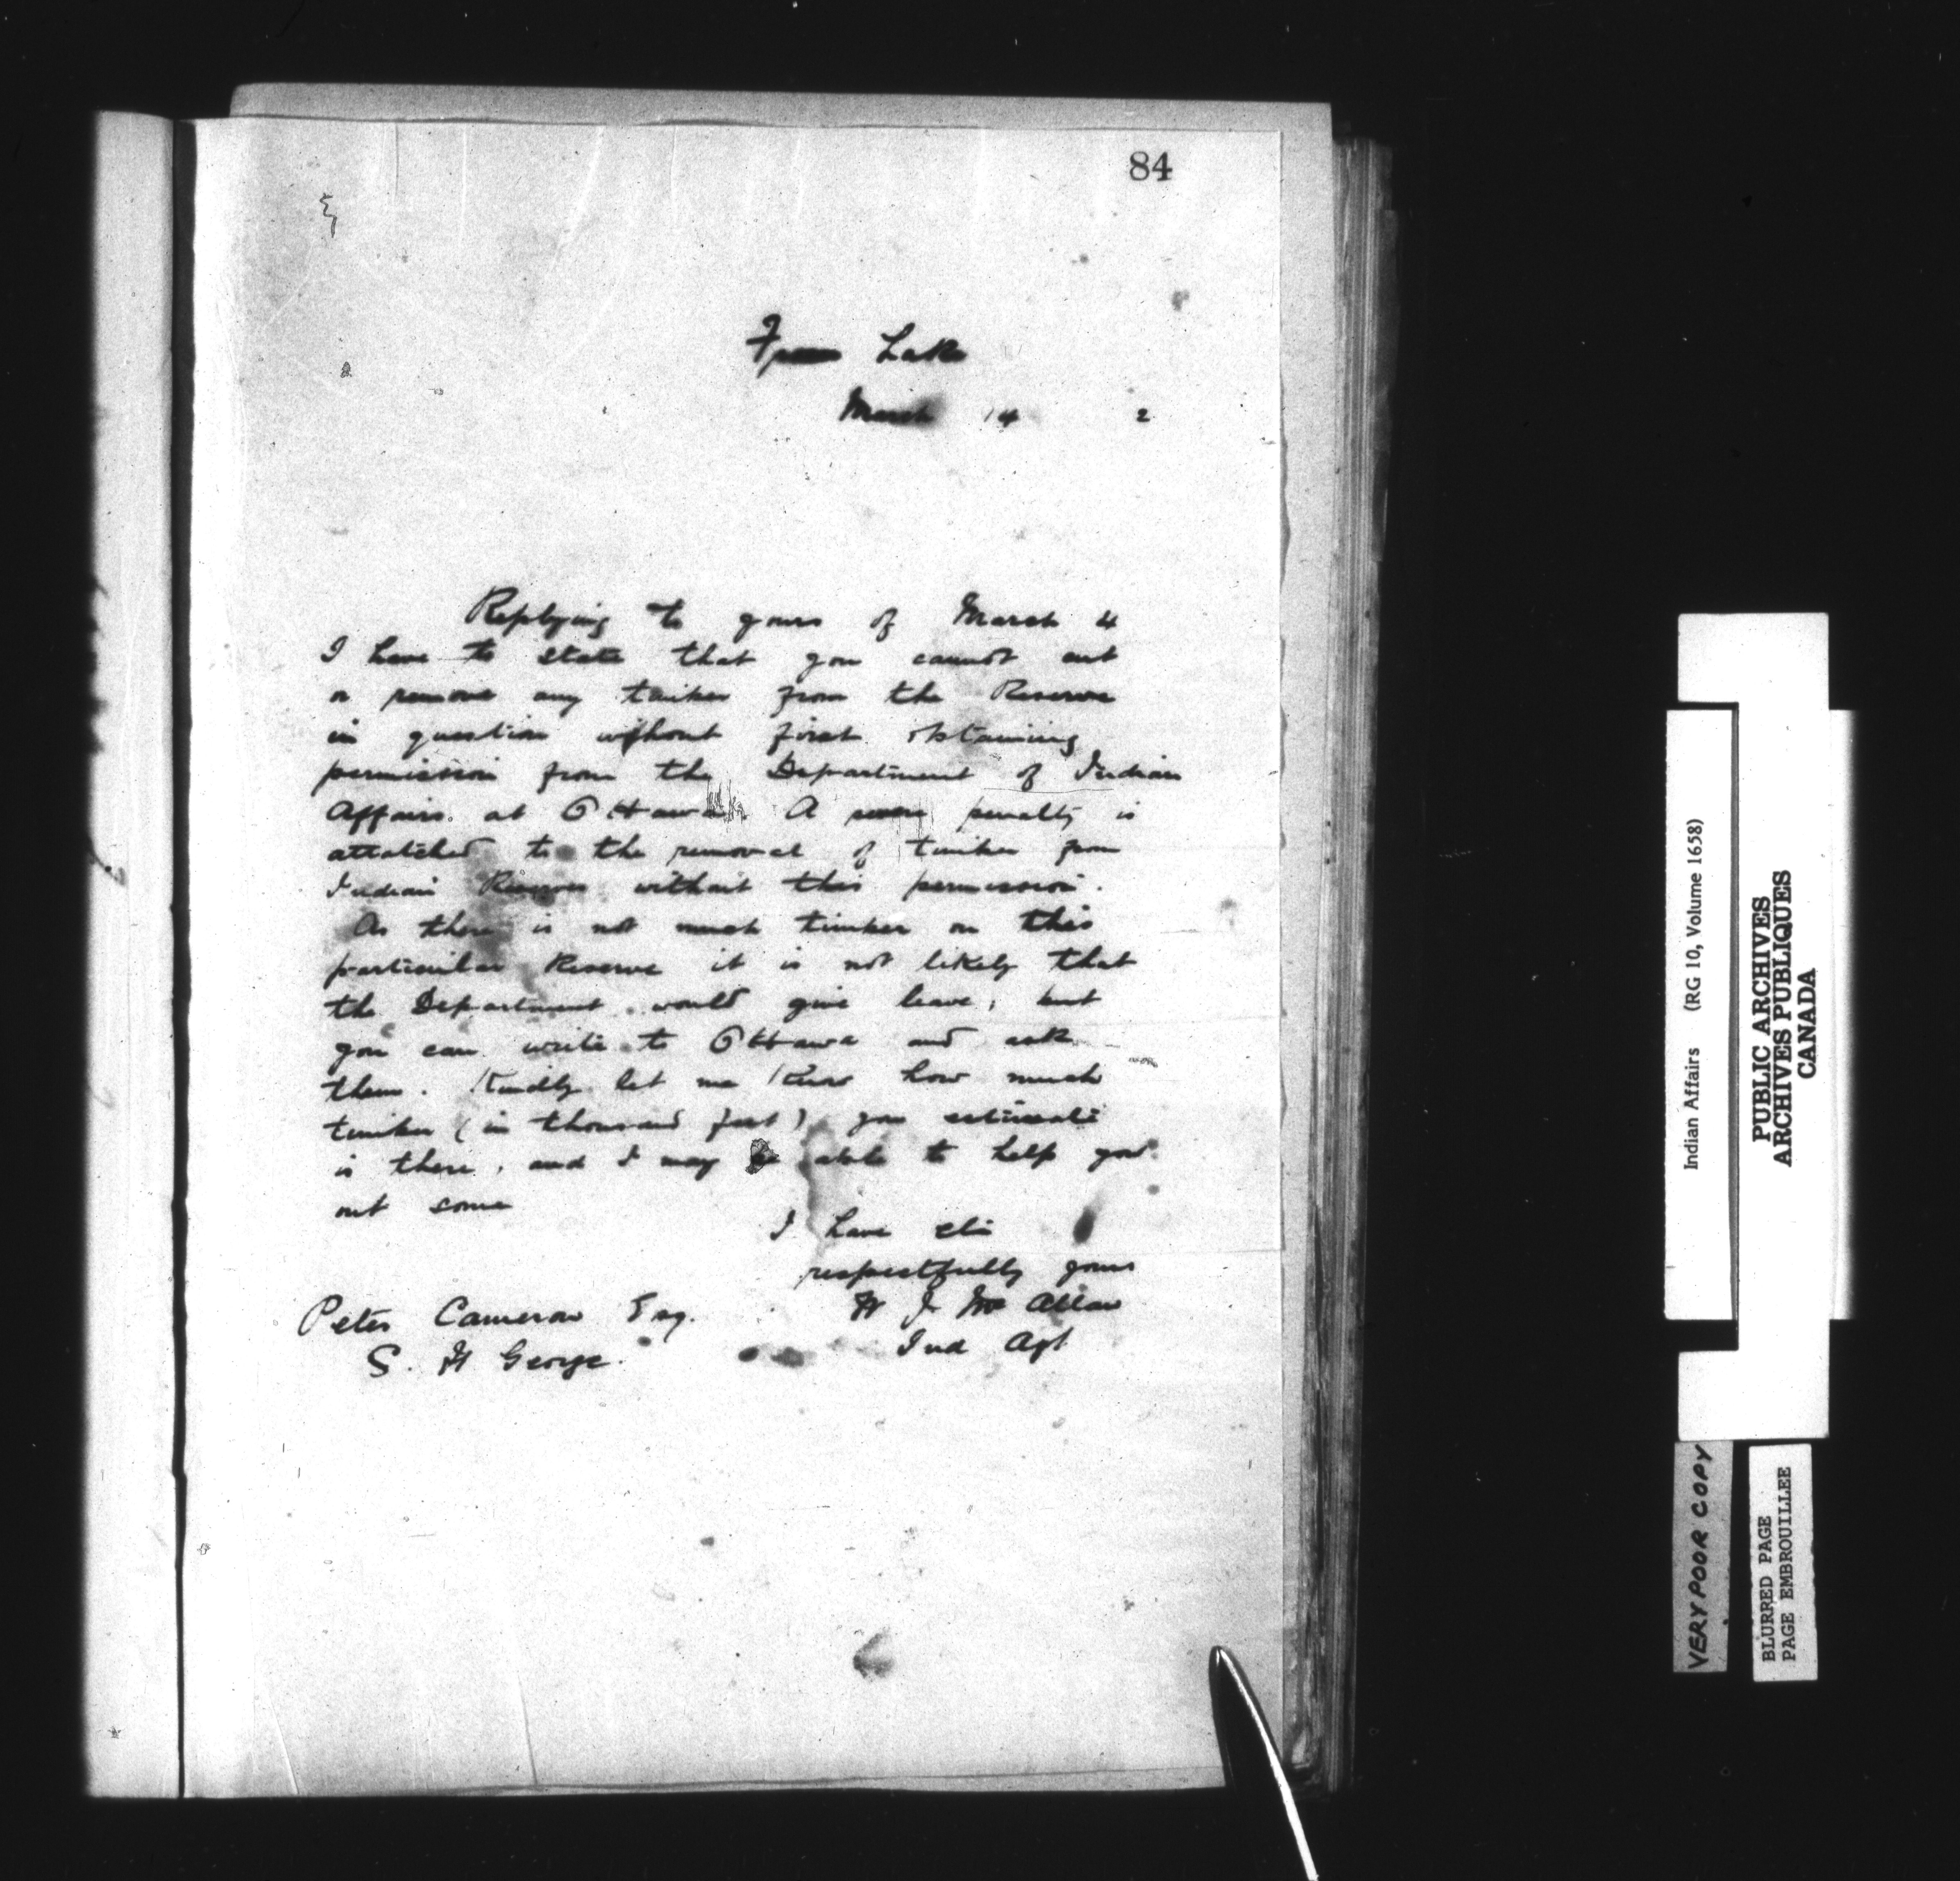 84
Fraser Lake
March 14 2
Replying to yours of March 4
I have to state that you cannot cut
or remove any timber from the Reserve
in question without first obtaining
permission from the Department of Indian
Affairs at Ottawa. A severe penalty is
attatched to the removal of timber from
Indian Reserves without this permission.
As there is not much timber on this
particular Reserve it is not likely that
the Department would give leave, but
you can write to Ottawa and ask
them. Kindly let me know how much
timber (in thousand feet) you estimate
is there, and I may be able to help you
out some
I have etc
respectfully yours
W J McAllan
Ind Agt
Peter Cameron Esq.
S. Ft George.
Indian Affairs (RG 10, Volume 1658)
PUBLIC ARCHIVES
ARCHIVES PUBLIQUES
CANADA
VERY POOR COPY
BLURRED PAGE
PAGE EMBROUILLEE